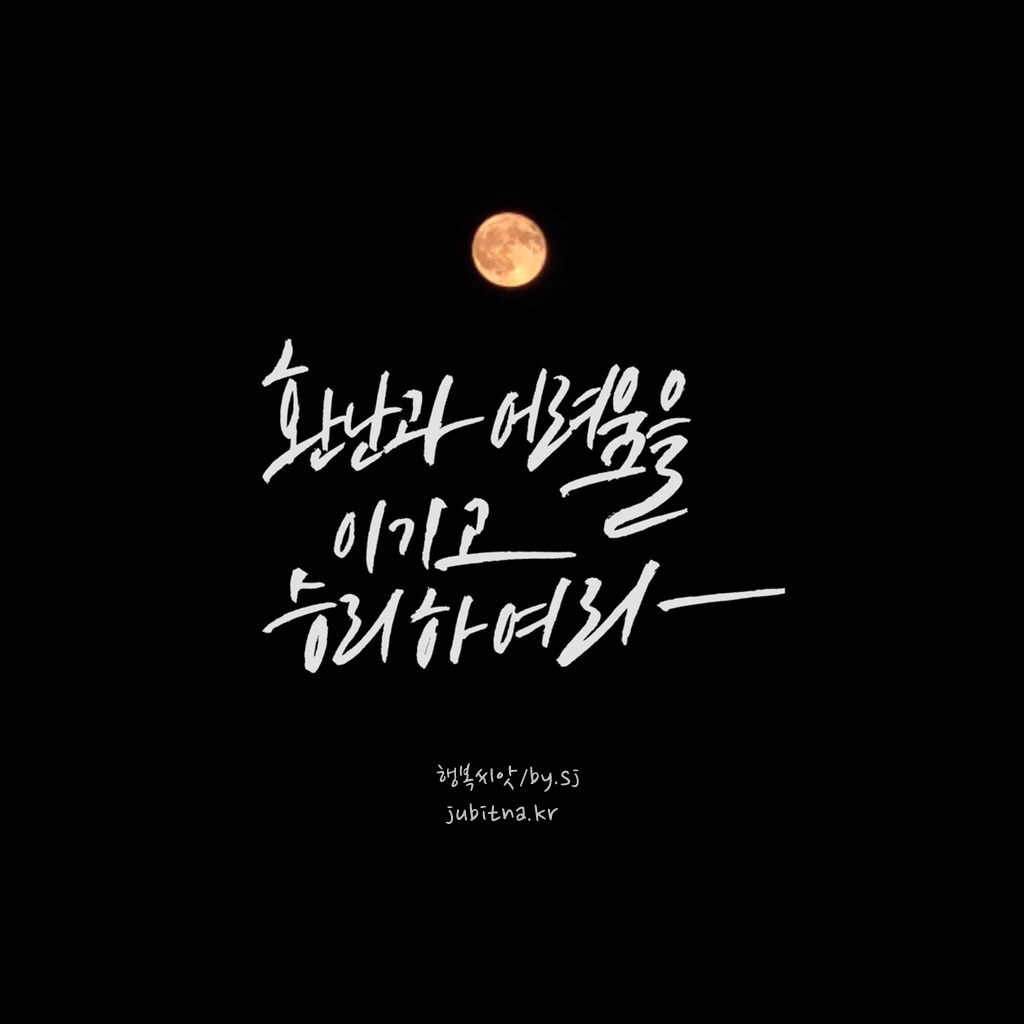 환난과 어려움을
이기고
승리하여라
행복씨앗/by.sj
jubitna.kr